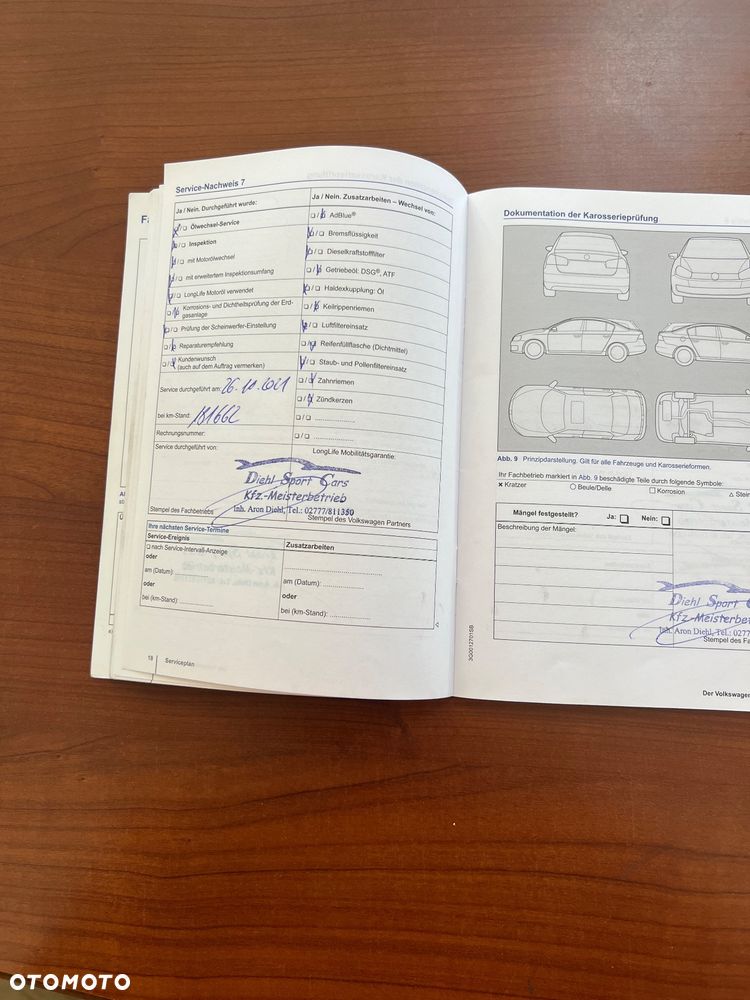 Service-Nachweis 7
Ja / Nein. Durchgeführt wurde:
Ölwechsel-Service
Inspektion
mit Motorölwechsel
mit erweitertem Inspektionsumfang
LongLife Motoröl verwendet
Korrosions- und Dichtheitsprüfung der Erd-
gasanlage
Prüfung der Scheinwerfer-Einstellung
Reparaturempfehlung
Kundenwunsch
(auch auf dem Auftrag vermerken)
Service durchgeführt am: 26.10.2021
bei km-Stand: 181662
Rechnungsnummer:
Service durchgeführt von:
Stempel des Fachbetriebs
Ja / Nein. Zusatzarbeiten – Wechsel von:
AdBlue®
Bremsflüssigkeit
Dieselkraftstofffilter
Getriebeöl: DSG®, ATF
Haldexkupplung: Öl
Keilrippenriemen
Luftfiltereinsatz
Reifenfüllflasche (Dichtmittel)
Staub- und Pollenfiltereinsatz
Zahnriemen
Zündkerzen
LongLife Mobilitätsgarantie:
Diehl Sport Cars
Kfz.-Meisterbetrieb
Inh. Aron Diehl, Tel.: 02777/811350
Stempel des Volkswagen Partners
Ihre nächsten Service-Termine
Service-Ereignis
nach Service-Intervall-Anzeige
oder
am (Datum):
oder
bei (km-Stand):
Zusatzarbeiten
am (Datum):
oder
bei (km-Stand):
18 Serviceplan
Dokumentation der Karosserieprüfung
Abb. 9 Prinzipdarstellung. Gilt für alle Fahrzeuge und Karosserieformen.
Ihr Fachbetrieb markiert in Abb. 9 beschädigte Teile durch folgende Symbole:
× Kratzer ○ Beule/Delle □ Korrosion △ Stein
Mängel festgestellt? Ja: Nein:
Beschreibung der Mängel:
Diehl Sport
Kfz.-Meisterbe
Inh. Aron Diehl, Tel.: 0277
Stempel des Fa
3G0012701SB
Der Volkswagen
OTOMOTO